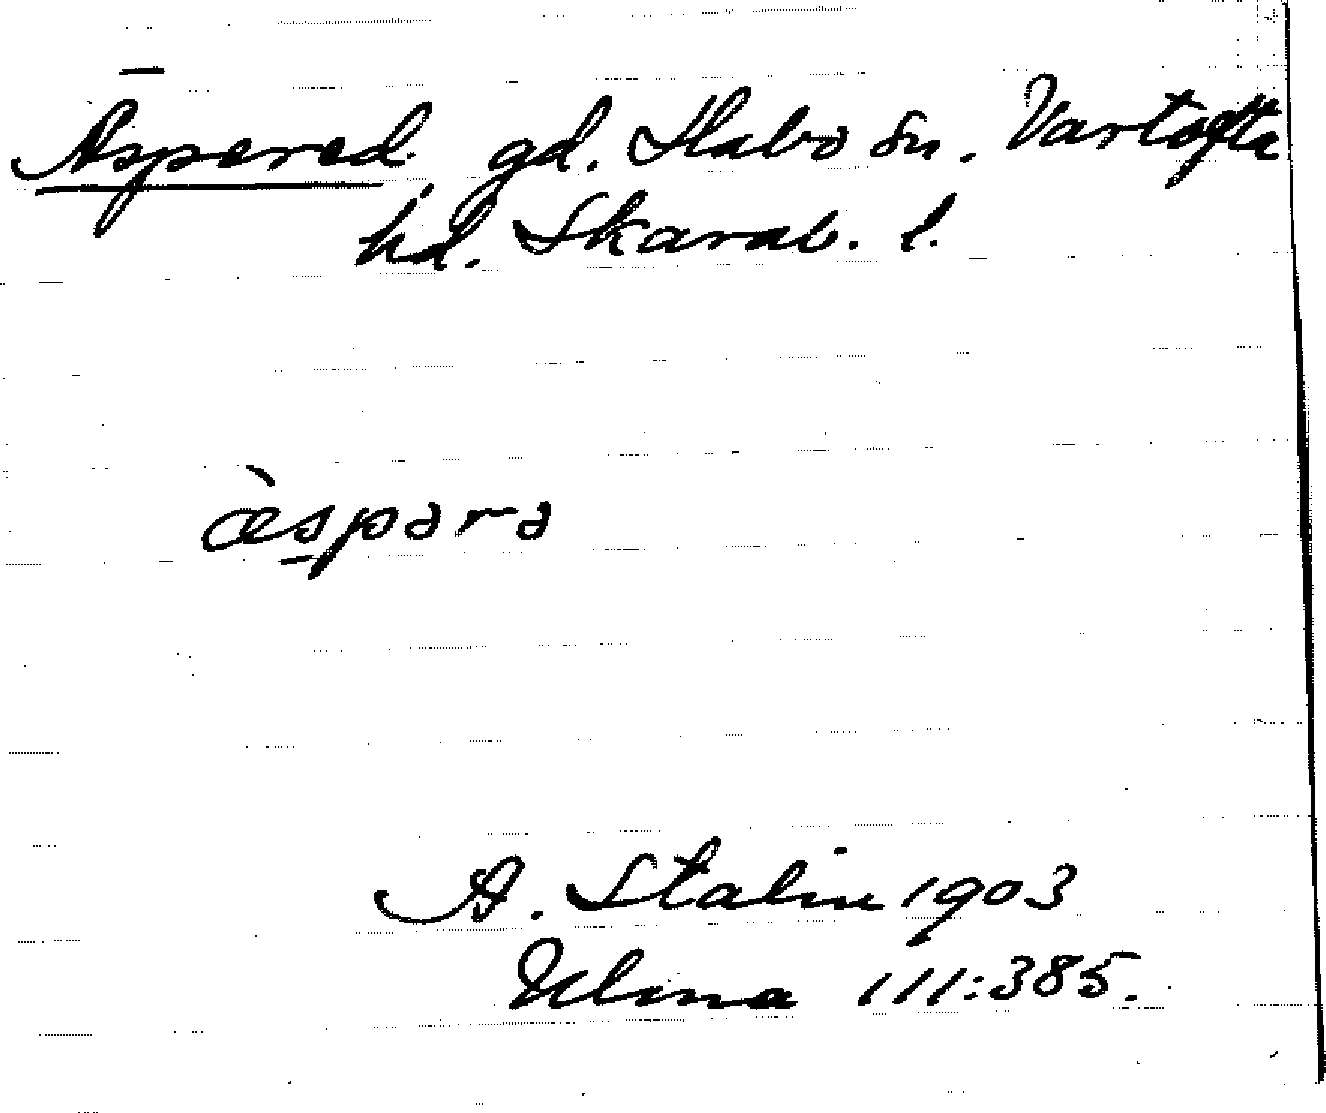 Äspered gd. Habo sn. Vartofta
hd. Skarab. l.
æ̀s̠pərə
A. Stalin 1903
Ulma 111:385.